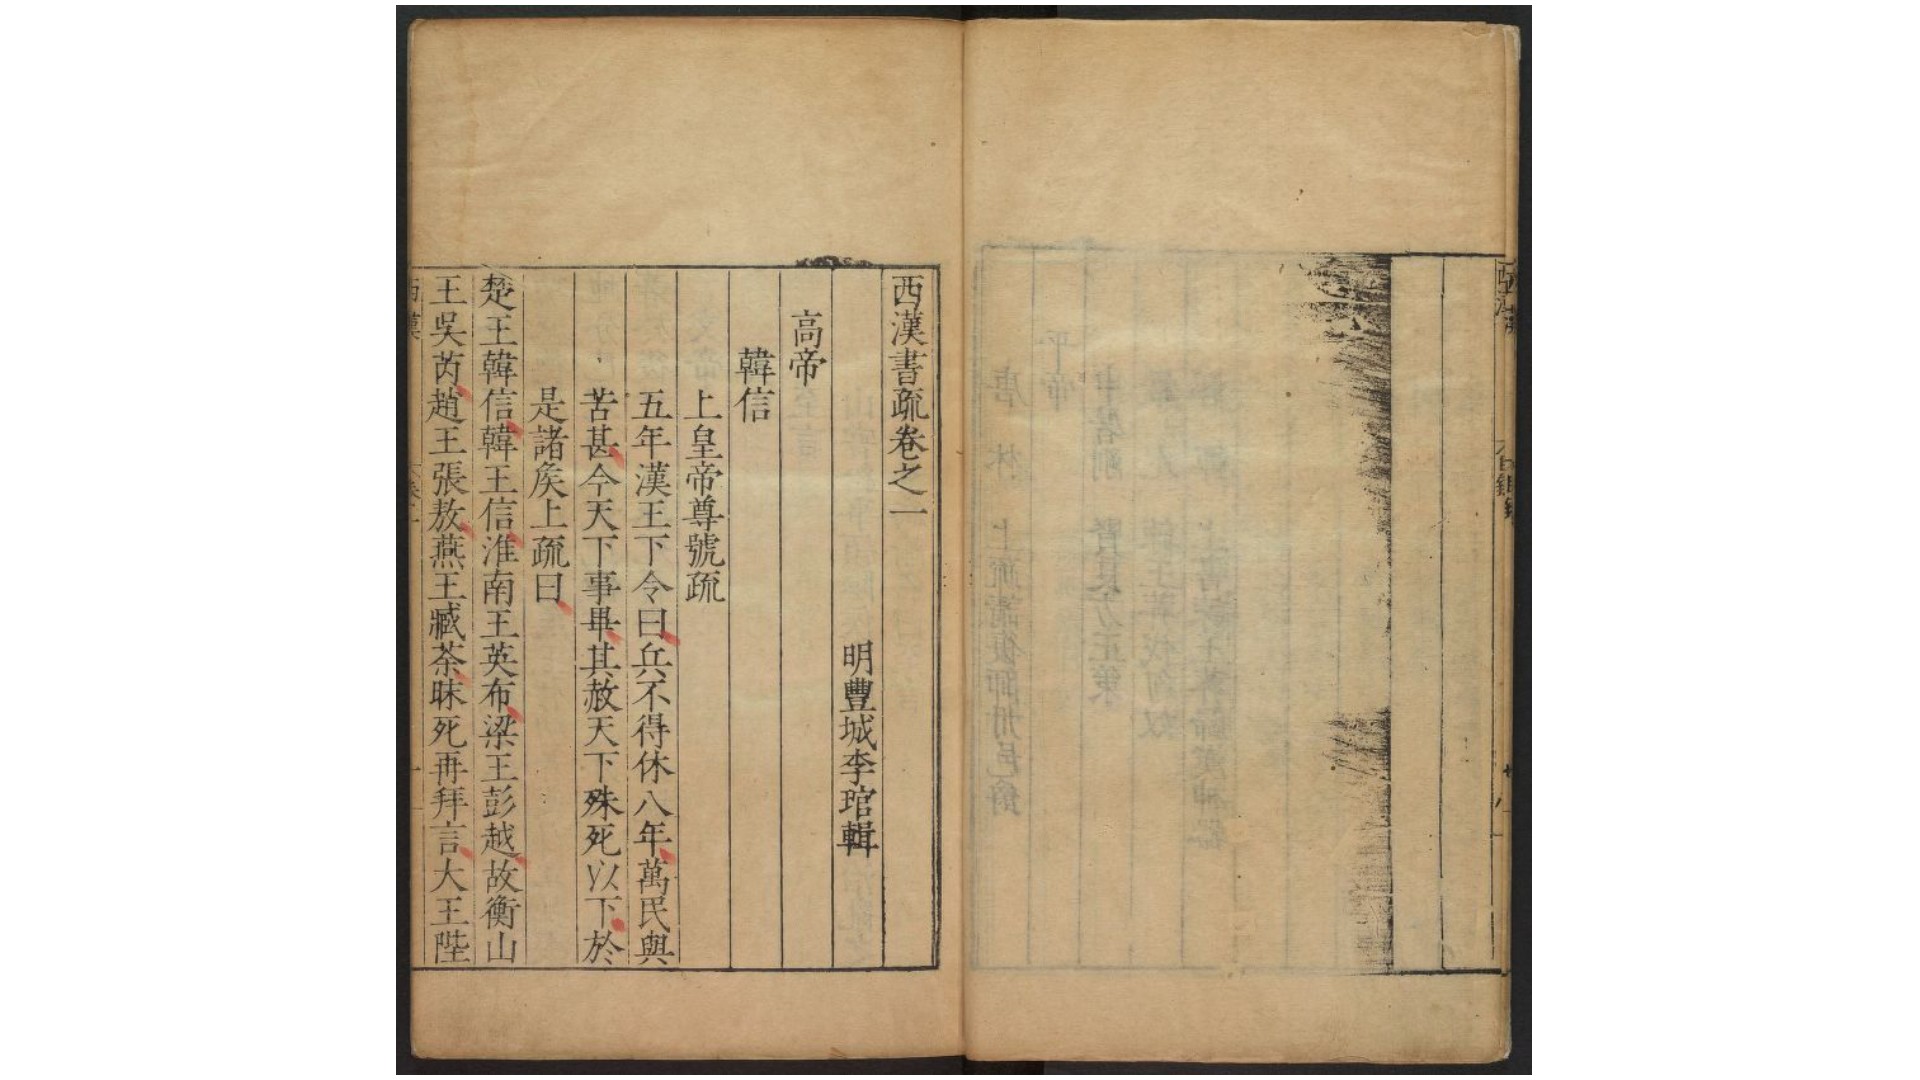 西漢書疏卷之一
明豐城李琯輯
高帝
韓信
上皇帝尊號疏
五年漢王下令曰兵不得休八年萬民與
苦甚今天下事畢其赦天下殊死以下於
是諸矦上疏曰
楚王韓信韓王信淮南王英布梁王彭越故衡山
王吳芮趙王張敖燕王臧荼昧死再拜言大王陛